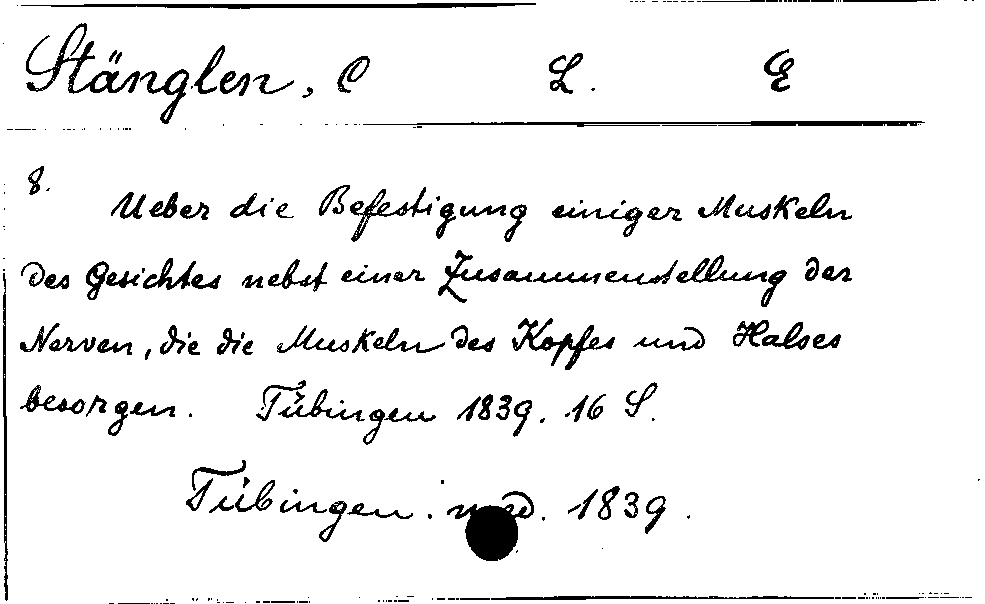 Stänglen, C L. E
8.
Ueber die Befestigung einiger Muskeln
des Gesichtes nebst einer Zusammenstellung der
Nerven, die die Muskeln des Kopfes und Halses
besorgen. Tübingen 1839. 16 S.
Tübingen. med. 1839.